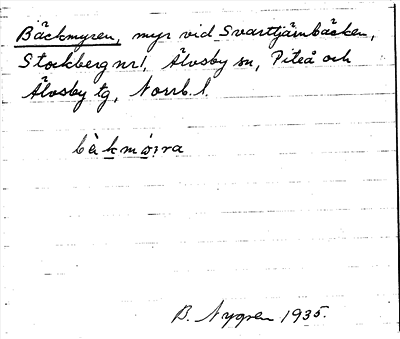 Bäckmyren, myr vid Svarttjärnbäcken,
Stockberg nr 1, Älvsby sn, Piteå och
Älvsby tg, Norrb. l.
bè̀kmø̀ɪra
B. Nygren 1935.